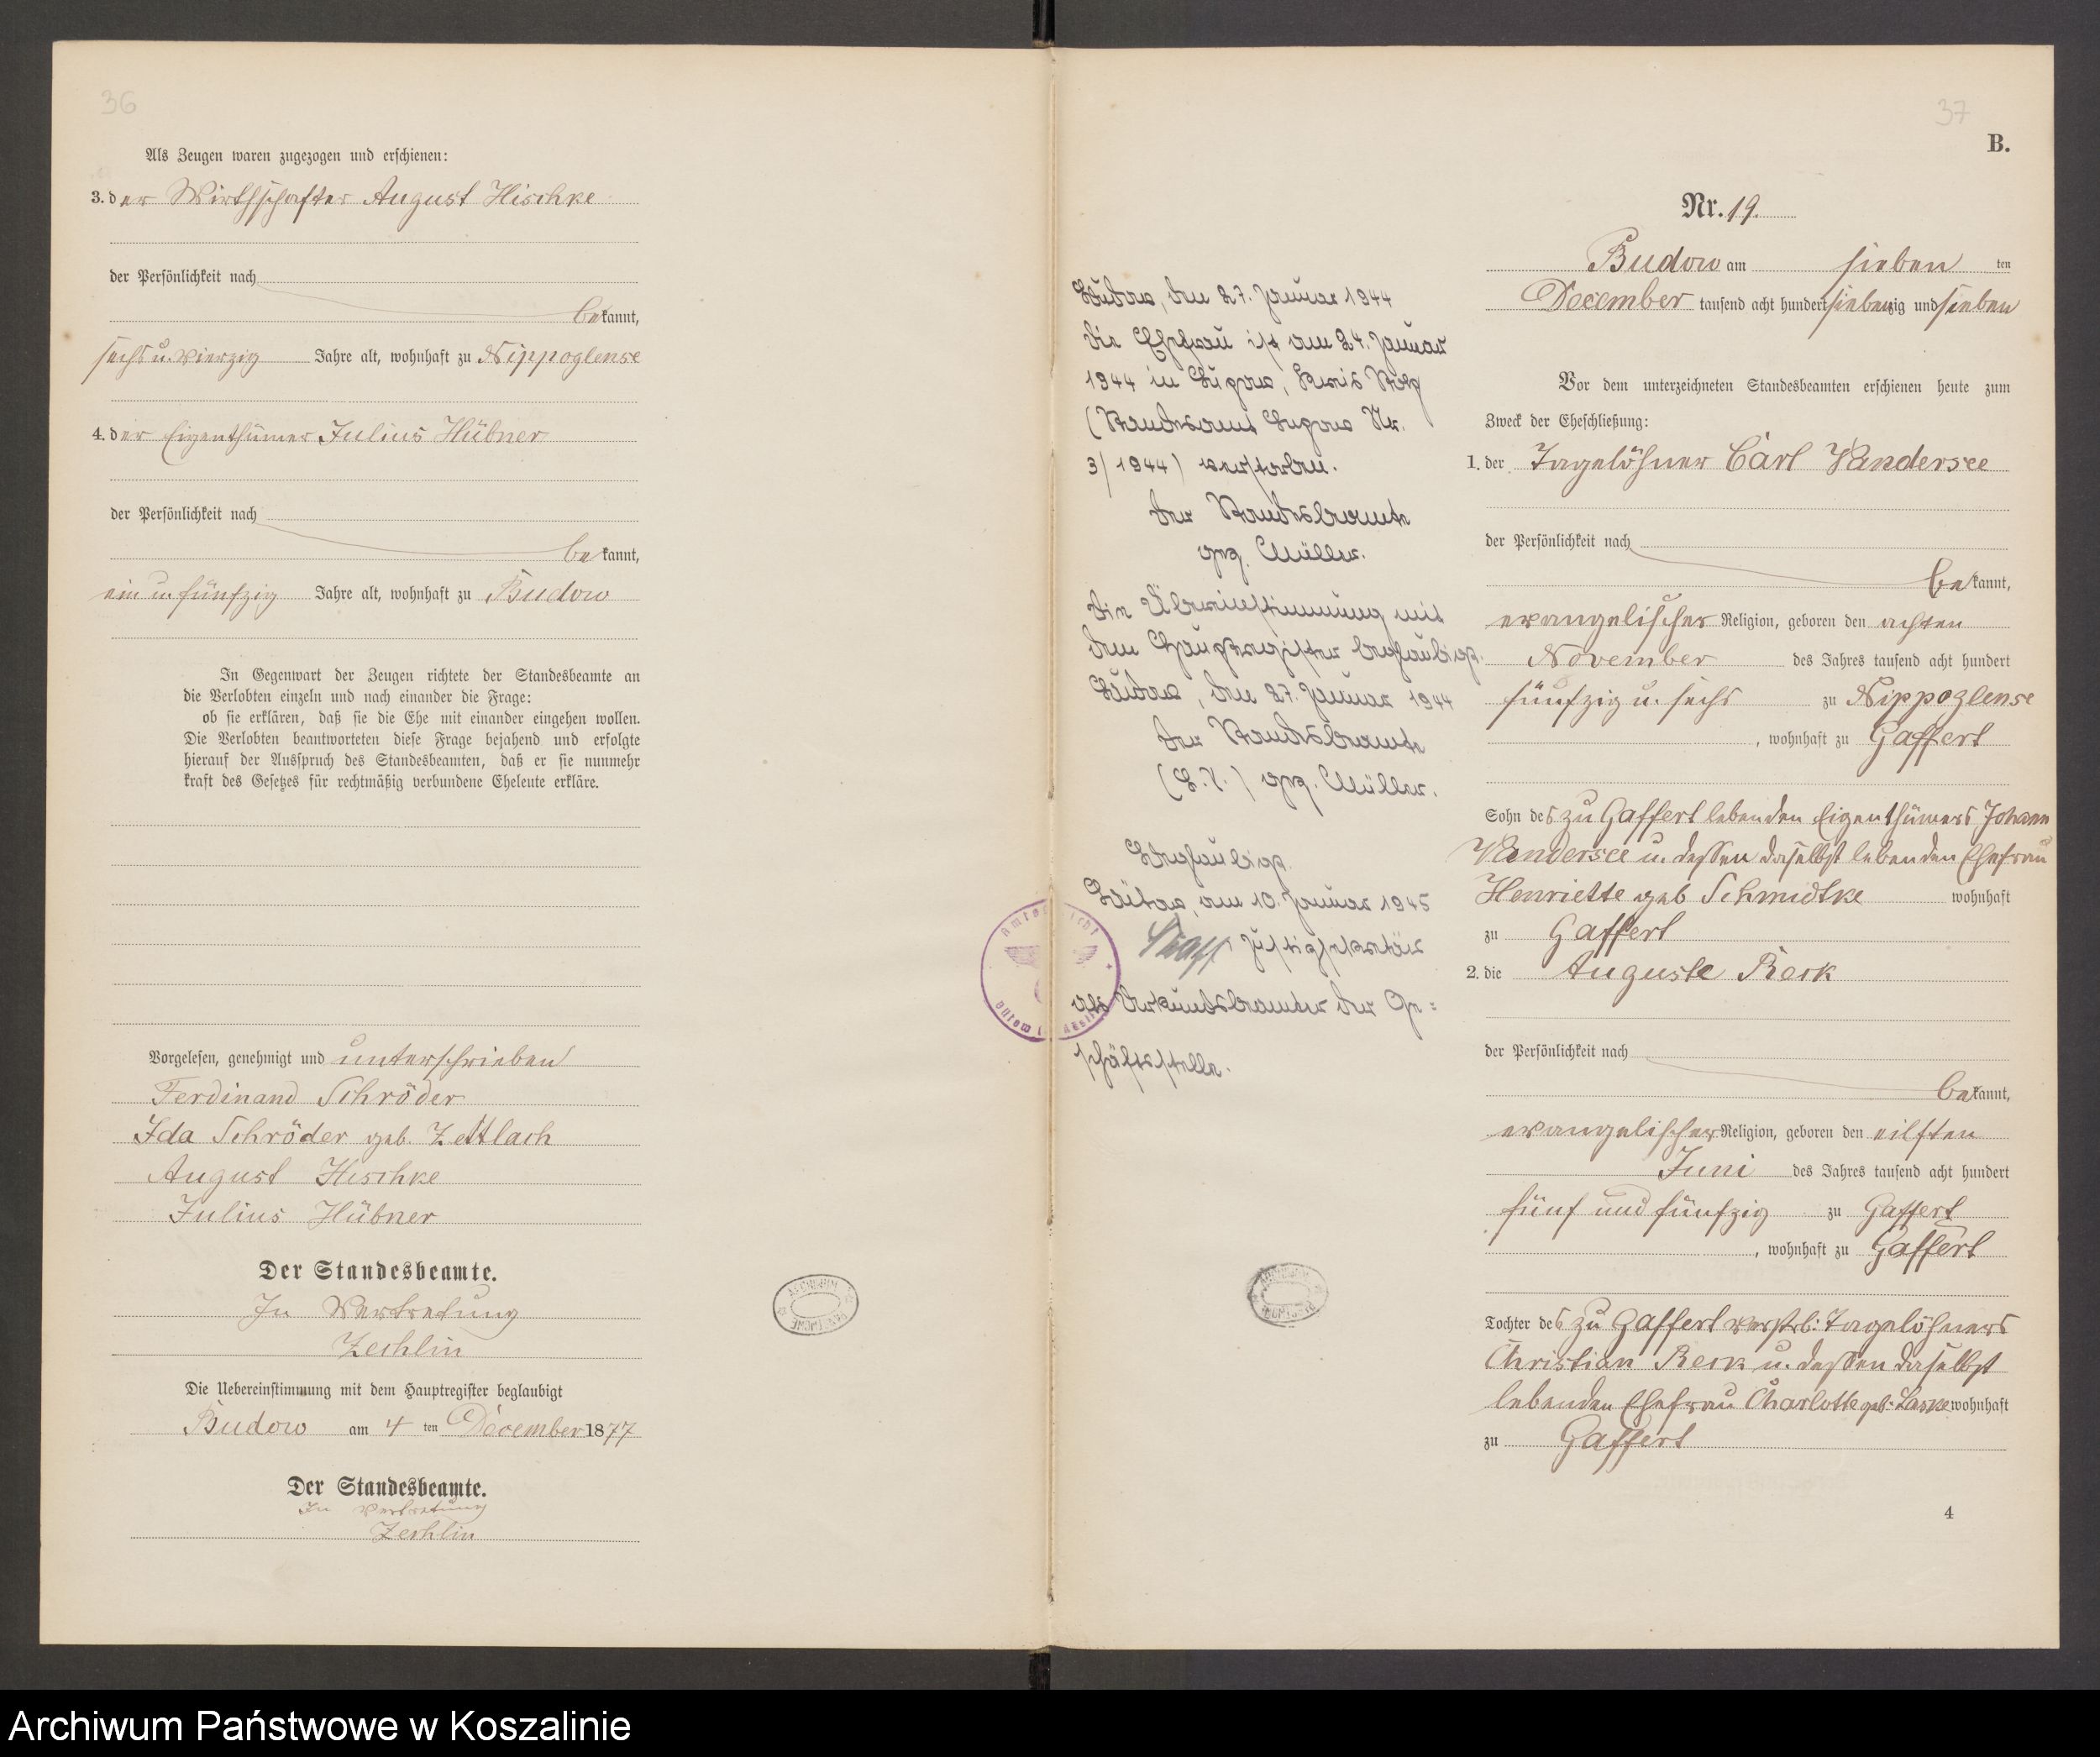 36
Als Zeugen waren zugezogen und erschienen:
3. der Wirthschafter August Hischke
der Persönlichkeit nach
bekannt,
sechs u. vierzig Jahre alt, wohnhaft zu Nippoglense
4. der Eigenthümer Julius Hübner
der Persönlichkeit nach
bekannt,
ein u. fünfzig Jahre alt, wohnhaft zu Budow
In Gegenwart der Zeugen richtete der Standesbeamte an
die Verlobten einzeln und nach einander die Frage:
ob sie erklären, daß sie die Ehe mit einander eingehen wollen.
Die Verlobten beantworteten diese Frage bejahend und erfolgte
hierauf der Ausspruch des Standesbeamten, daß er sie nunmehr
kraft des Gesetzes für rechtmäßig verbundene Eheleute erkläre.
Vorgelesen, genehmigt und unterschrieben
Ferdinand Schröder
Ida Schröder geb. Zettlach
August Hischke
Julius Hübner
Der Standesbeamte.
In Vertretung
Zechlin
Die Uebereinstimmung mit dem Hauptregister beglaubigt
Budow am 4 ten December 1877
Der Standesbeamte.
In Vertretung
Zechlin
Budow, den 27. Januar 1944
Die Ehefrau ist am 24. Januar
1944 in Lupow, Kreis Stolp
(Standesamt Lupow Nr.
3/1944) verstorben.
Der Standesbeamte
gez. Müller.
Die Übereinstimmung mit
dem Hauptregister beglaubigt.
Budow, den 27. Januar 1944
Der Standesbeamte
(L.S.) gez. Müller.
Beglaubigt.
Bütow, am 10. Januar 1945
Justizsekretär
als Urkundsbeamter der Ge=
schäftsstelle.
37
B.
Nr. 19.
Budow am sieben ten
December tausend acht hundert siebenzig und sieben
Vor dem unterzeichneten Standesbeamten erschienen heute zum
Zweck der Eheschließung:
1. der Tagelöhner Carl Vandersee
der Persönlichkeit nach
bekannt,
evangelischer Religion, geboren den achten
November des Jahres tausend acht hundert
fünfzig u. sechs zu Nippoglense
, wohnhaft zu Gaffert
Sohn des zu Gaffert lebenden Eigenthümers Johann
Vandersee u. dessen daselbst lebenden Ehefrau
Henriette geb Schmidtke wohnhaft
zu Gaffert
2. die Auguste Reck
der Persönlichkeit nach
bekannt,
evangelischer Religion, geboren den eilften
Juni des Jahres tausend acht hundert
fünf und fünfzig zu Gaffert
, wohnhaft zu Gaffert
Tochter des zu Gaffert verstrb: Tagelöhners
Christian Reck u. dessen daselbst
lebenden Ehefrau Charlotte geb: Laske wohnhaft
zu Gaffert
4
Archiwum Państwowe w Koszalinie